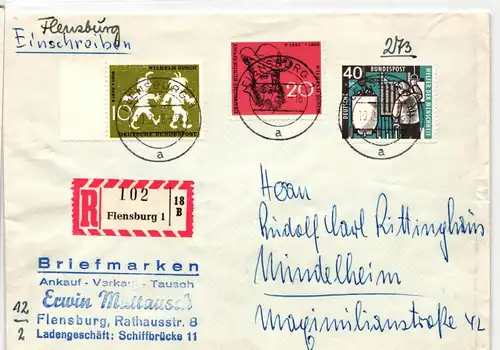 Flensburg
Einschreiben
273
WILHELM BUSCH
10
DEUTSCHE BUNDESPOST
20
40
DEUTSCHE BUNDESPOST
HELFER DER MENSCHHEIT
FLENSBURG
a
a
a
R
102
Flensburg 1
18
B
Herrn
Rudolf Carl Rittinghaus
Mindelheim
Maximilianstraße 42
Briefmarken
Ankauf - Verkauf - Tausch
Erwin
Flensburg, Rathausstr. 8
Ladengeschäft: Schiffbrücke 11
12
2